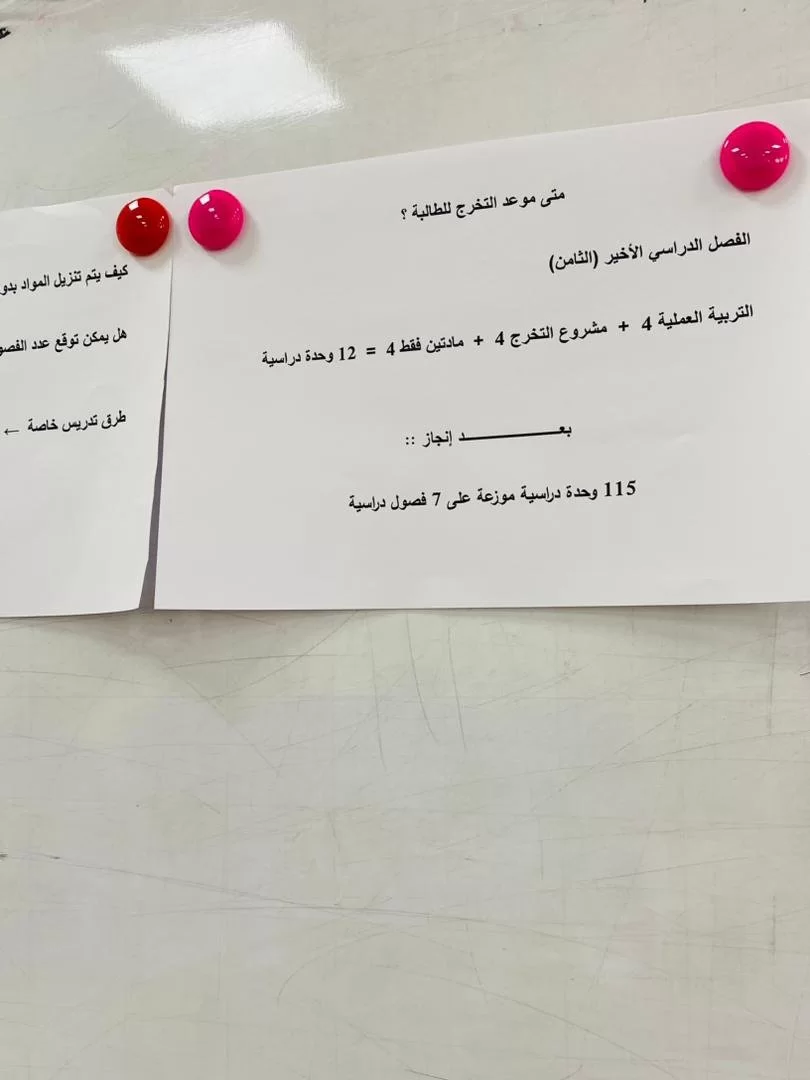 متى موعد التخرج للطالبة ؟
الفصل الدراسي الأخير (الثامن)
التربية العملية 4 + مشروع التخرج 4 + مادتين فقط 4 = 12 وحدة دراسية
بعـــــــــــــد إنجاز ::
115 وحدة دراسية موزعة على 7 فصول دراسية
كيف يتم تنزيل المواد
هل يمكن توقع عدد
طرق تدريس خاصة ←